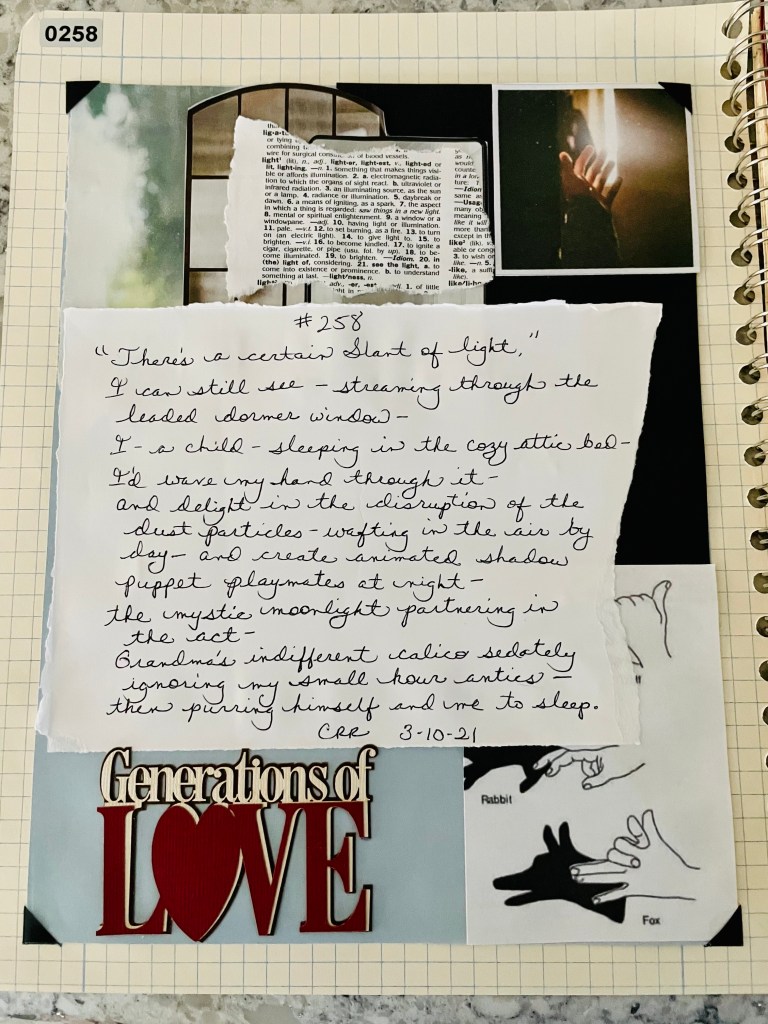 0258
lig·a·t
or tying
combining t
wire for surgical cons of blood vessels.
light¹ (līt), n., adj., light·er, light·est, v., light·ed or
lit, light·ing. —n. 1. something that makes things visi-
ble or affords illumination. 2. a. electromagnetic radia-
tion to which the organs of sight react. b. ultraviolet or
infrared radiation. 3. an illuminating source, as the sun
or a lamp. 4. radiance or illumination. 5. daybreak or
dawn. 6. a means of igniting, as a spark. 7. the aspect
in which a thing is regarded: saw things in a new light.
8. mental or spiritual enlightenment. 9. a window or a
windowpane. —adj. 10. having light or illumination.
11. pale. —v.t. 12. to set burning, as a fire. 13. to turn
on (an electric light). 14. to give light to. 15. to
brighten. —v.i. 16. to become kindled. 17. to ignite a
cigar, cigarette, or pipe (usu. fol. by up). 18. to be-
come illuminated. 19. to brighten. —Idiom. 20. in
(the) light of, considering. 21. see the light, a. to
come into existence or prominence. b. to understand
something at last. —light/ness, n.
light² adv., -er, -est adj. 1. of little
as
would
counte
in a lo
ture:
—Idiom
same as
—Usag
many ob
meaning
like it will
more than
except in th
like³ (līk), v
able or cong
3. to wish o
like. —n. 5.
-like, a suff
like).
like/li·ho
#258
"There's a certain Slant of light,"
I can still see – streaming through the
leaded dormer window –
I – a child – sleeping in the cozy attic bed –
I'd wave my hand through it –
and delight in the disruption of the
dust particles – wafting in the air by
day – and create animated shadow
puppet playmates at night –
the mystic moonlight partnering in
the act –
Grandma's indifferent calico sedately
ignoring my small hour antics –
then purring himself and me to sleep.
CRR 3-10-21
Generations of
LOVE
Rabbit
Fox